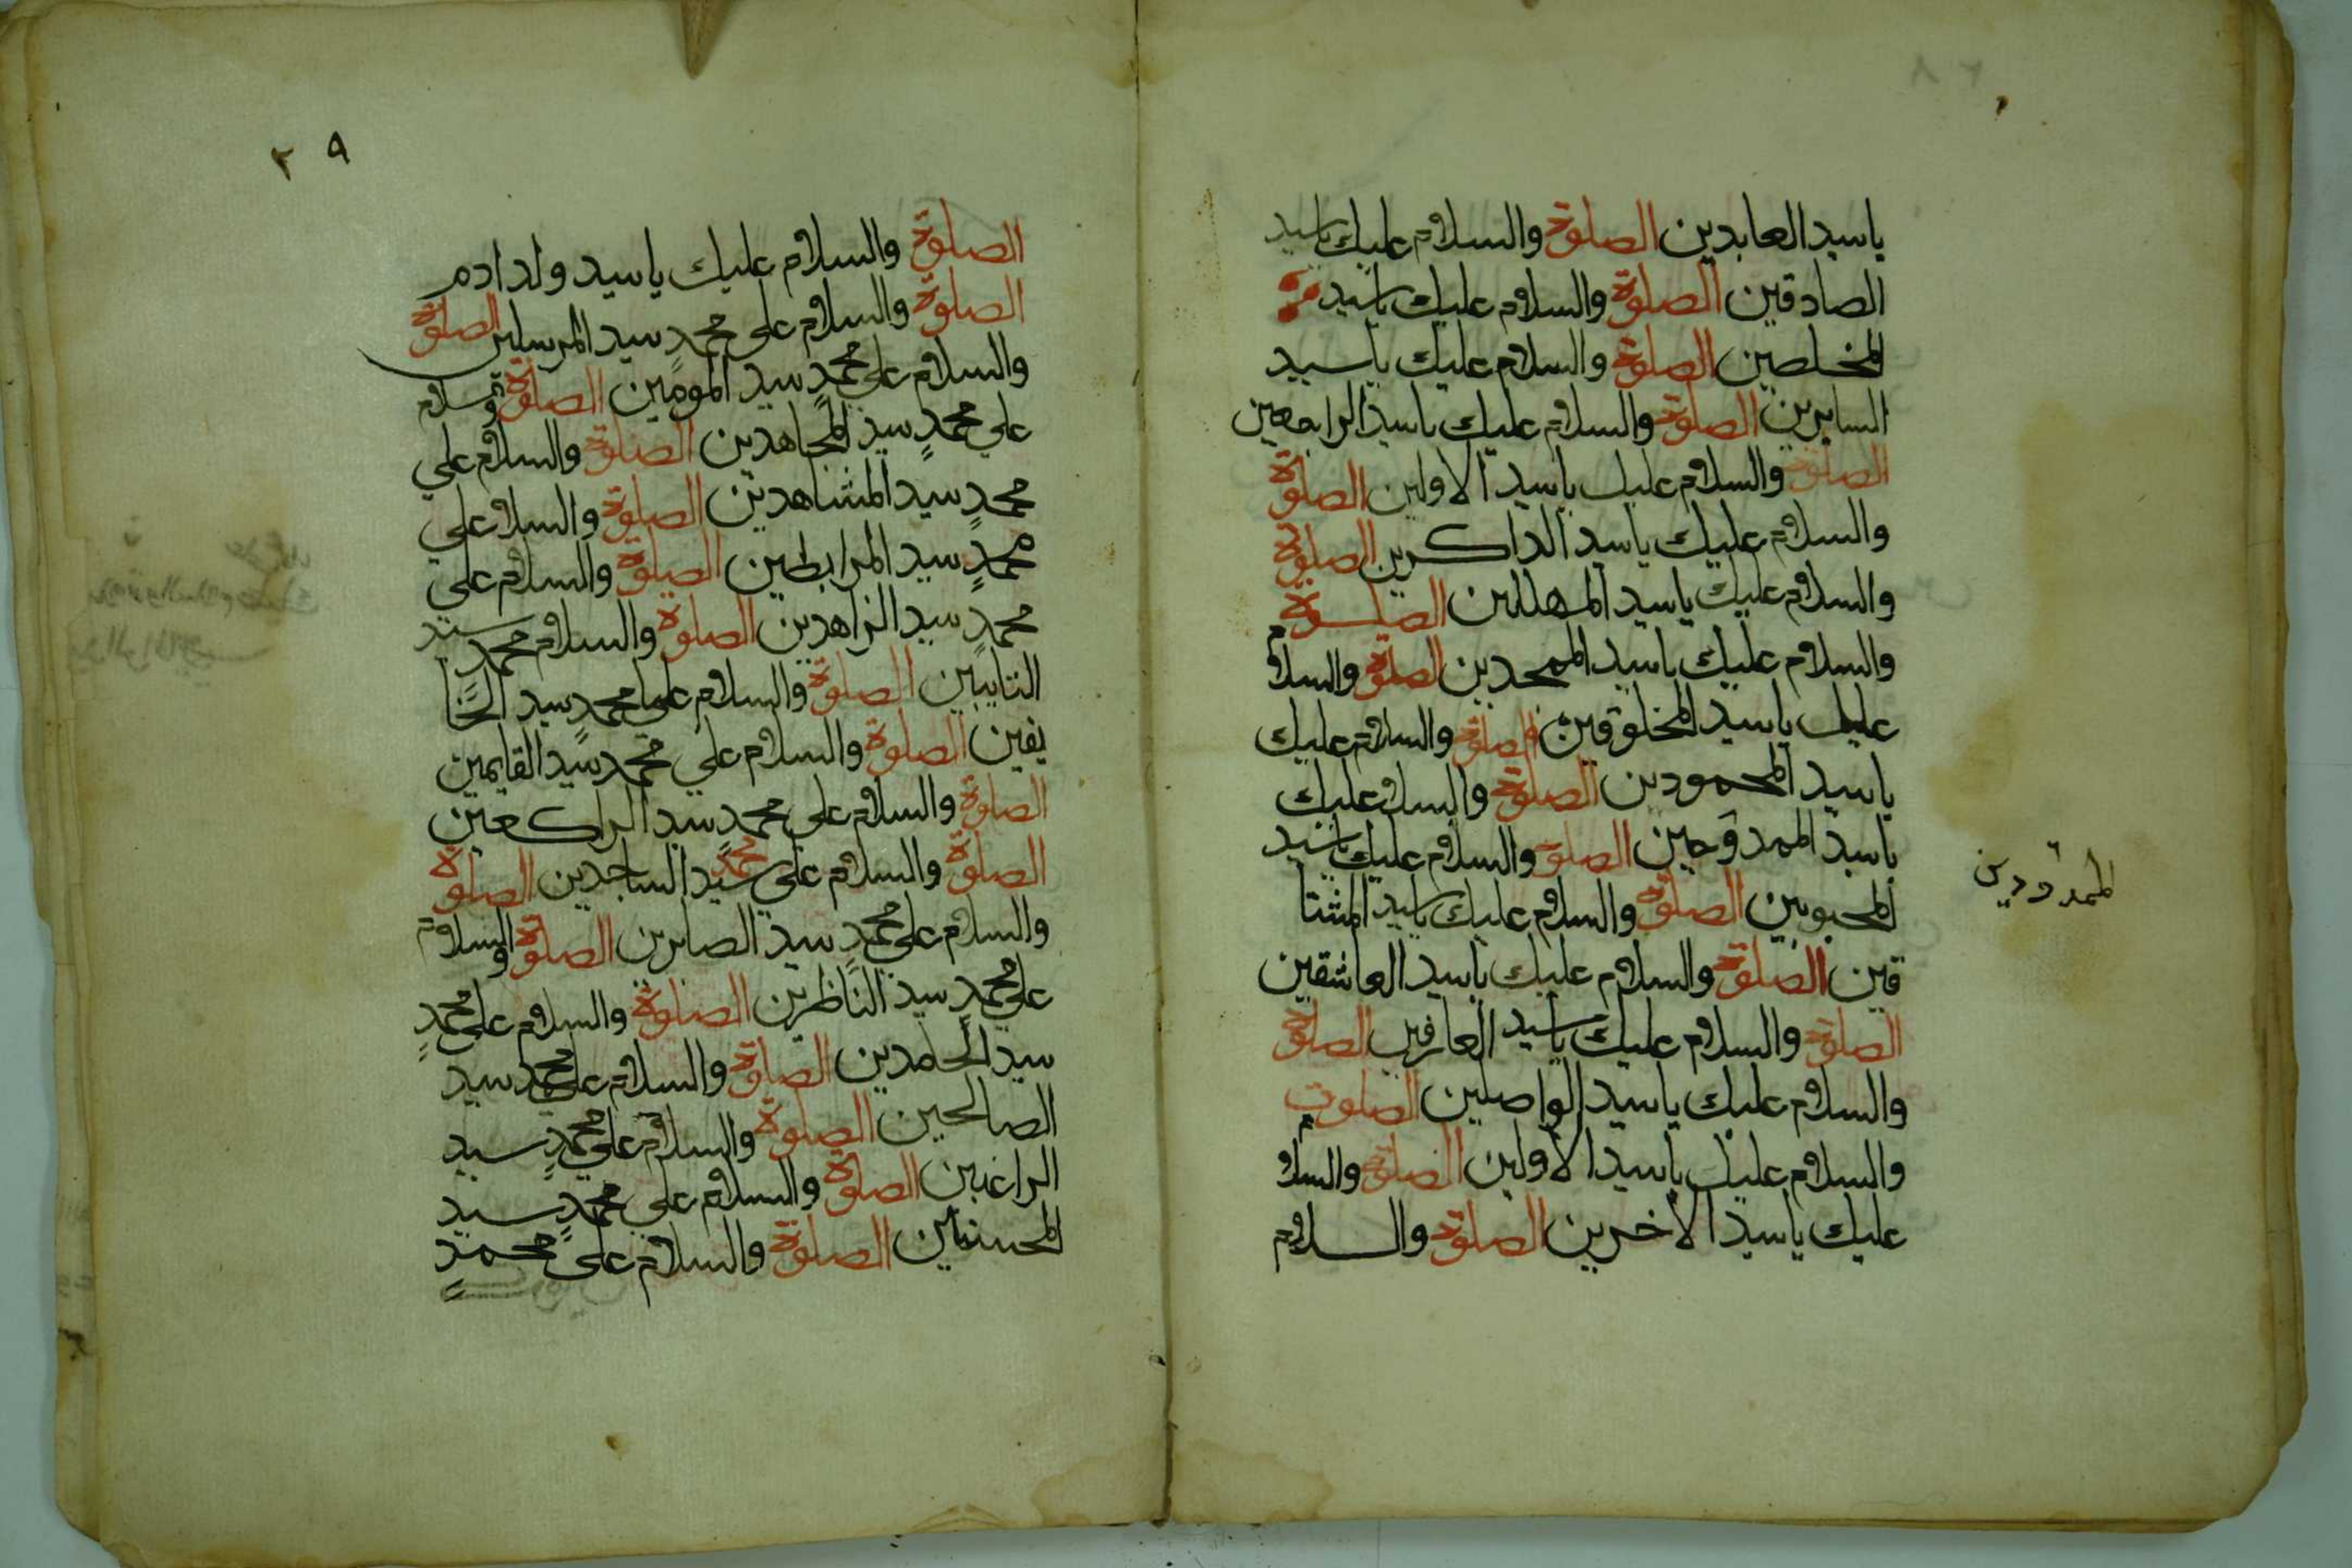 ياسيد العابدين الصلوة والسلام عليك ياسيد
الصادقين الصلوة والسلام عليك ياسيد
المخلصين الصلوة والسلام عليك ياسيد
السايرين الصلوة والسلام عليك ياسيد الراجعين
الصلوة والسلام عليك ياسيد الاولين الصلوة
والسلام عليك ياسيد الداكرين الصلوة
والسلام عليك ياسيد المهللين الصلوة
والسلام عليك ياسيد الممجدين الصلوة والسلام
عليك ياسيد المخلوقين الصلوة والسلام عليك
ياسيد المحمودين الصلوة والسلام عليك
ياسيد الممدوحين الصلوة والسلام عليك ياسيد
الممدودين
المحبوبين الصلوة والسلام عليك ياسيد المشتا
قين الصلوة والسلام عليك ياسيد العاشقين
الصلوة والسلام عليك ياسيد العارفين الصلوة
والسلام عليك ياسيد الواصلين الصلوت
والسلام عليك ياسيد الاولين الصلوة والسلام
عليك ياسيد الاخرين الصلوة والسلام
٢٩
الصلوة والسلام عليك ياسيد ولد ادم
الصلوة والسلام على محمد سيد المرسلين الصلوة
والسلام علي محمد سيد المومنين الصلوة والسلام
علي محمد سيد المجاهدين الصلوة والسلام علي
محمد سيد المشاهدين الصلوة والسلام علي
محمد سيد المرابطين الصلوة والسلام على
محمد سيد الزاهدين الصلوة والسلام محمد سيد
التايبين الصلوة والسلام علي محمد سيد الخا
يفين الصلوة والسلام علي محمد سيد القايمين
الصلوة والسلام علي محمد سيد الراكعين
الصلوة والسلام علي محمد سيد الساجدين الصلوة
والسلام علي محمد سيد الصابرين الصلوة والسلام
علي محمد سيد الناظرين الصلوة والسلام علي محمد
سيد الحامدين الصلوة والسلام علي محمد سيد
الصالحين الصلوة والسلام علي محمد سيد
الراغبين الصلوة والسلام علي محمد سيد
المحسنين الصلوة والسلام على محمد